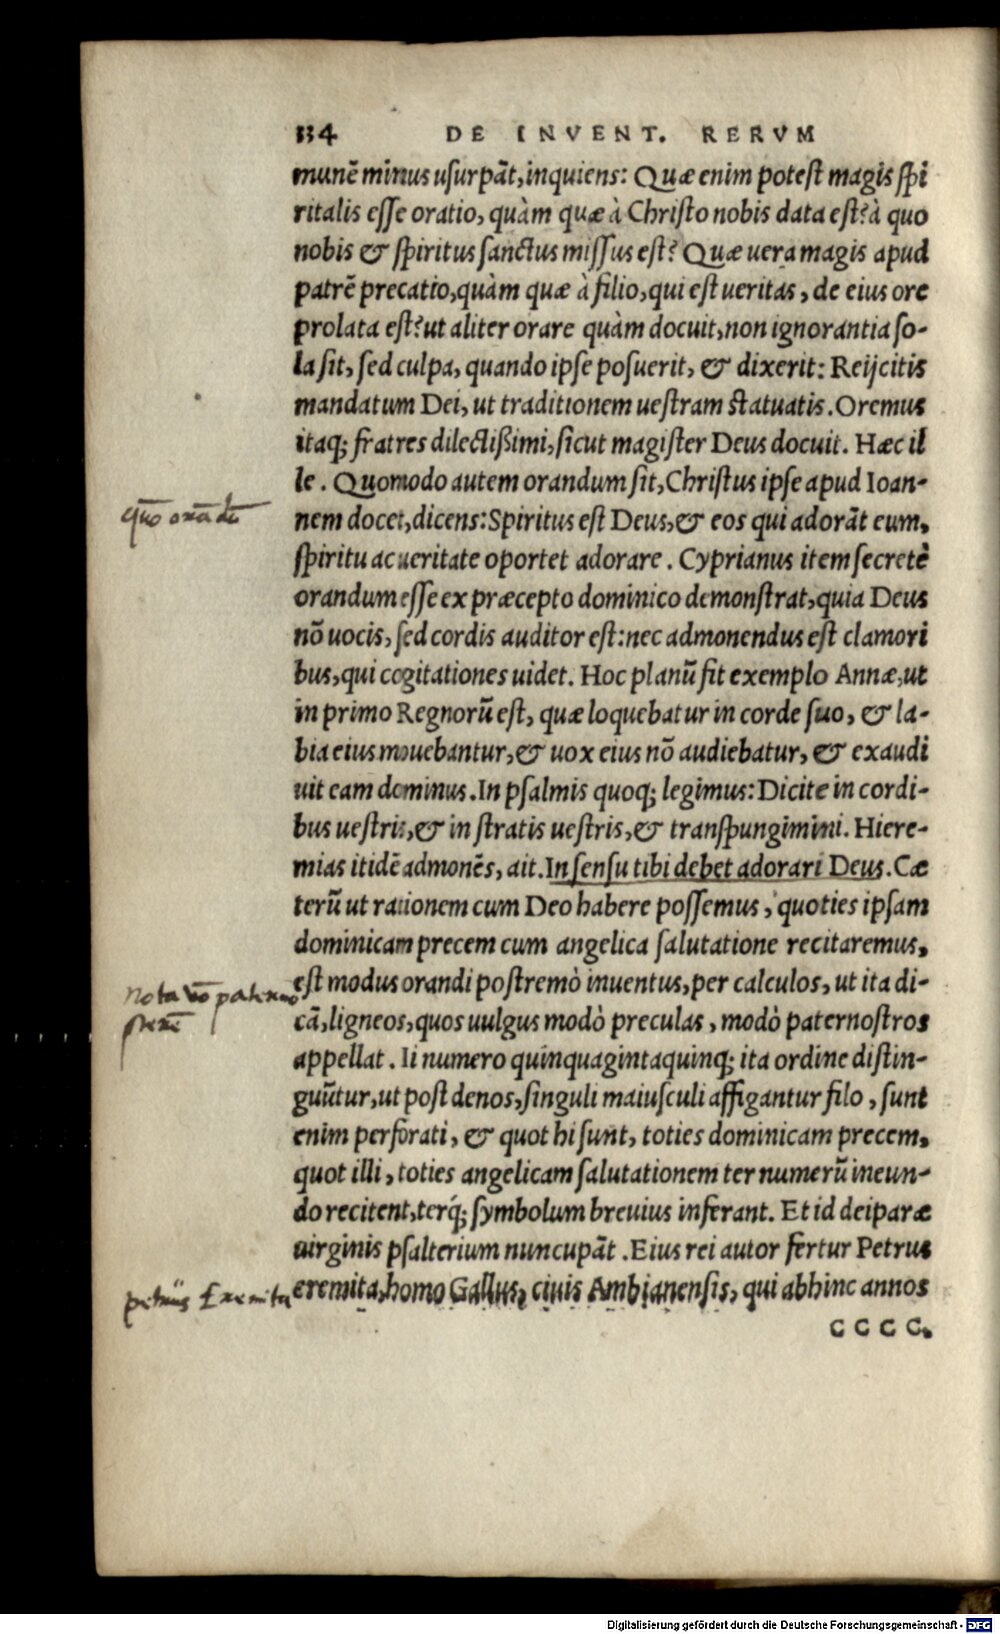 334 DE INVENT. RERVM
munē minus usurpāt, inquiens: Quæ enim potest magis spi
ritalis esse oratio, quàm quæ à Christo nobis data est? à quo
nobis & spiritus sanctus missus est? Quæ uera magis apud
patrē precatio, quàm quæ à filio, qui est ueritas, de eius ore
prolata est? ut aliter orare quàm docuit, non ignorantia so-
la sit, sed culpa, quando ipse posuerit, & dixerit: Reijcitis
mandatum Dei, ut traditionem uestram statuatis. Oremus
itaq; fratres dilectißimi, sicut magister Deus docuit. Hæc il
le. Quomodo autem orandum sit, Christus ipse apud Ioan-
quō
nem docet, dicens: Spiritus est Deus, & eos qui adorāt eum,
spiritu ac ueritate oportet adorare. Cyprianus item secretè
orandum esse ex præcepto dominico demonstrat, quia Deus
nō uocis, sed cordis auditor est: nec admonendus est clamori
bus, qui cogitationes uidet. Hoc planū fit exemplo Annæ, ut
in primo Regnorū est, quæ loquebatur in corde suo, & la-
bia eius mouebantur, & uox eius nō audiebatur, & exaudi
uit eam dominus. In psalmis quoq; legimus: Dicite in cordi-
bus uestris, & in stratis uestris, & transpungimini. Hiere-
mias itidē admonēs, ait. In sensu tibi debet adorari Deus. Cæ
terū ut rationem cum Deo habere possemus, quoties ipsam
dominicam precem cum angelica salutatione recitaremus,
nota
est modus orandi postremò inuentus, per calculos, ut ita di-
cā, ligneos, quos uulgus modò preculas, modò paternostros
appellat. Ii numero quinquagintaquinq; ita ordine distin-
guūtur, ut post denos, singuli maiusculi affigantur filo, sunt
enim perforati, & quot hi sunt, toties dominicam precem,
quot illi, toties angelicam salutationem ter numerū ineun-
do recitent, terq́; symbolum breuius inferant. Et id deiparæ
uirginis psalterium nuncupāt. Eius rei autor fertur Petrus
petrus Eremita
eremita, homo Gallus, ciuis Ambianensis, qui abhinc annos
CCCC.
Digitalisierung gefördert durch die Deutsche Forschungsgemeinschaft - DFG